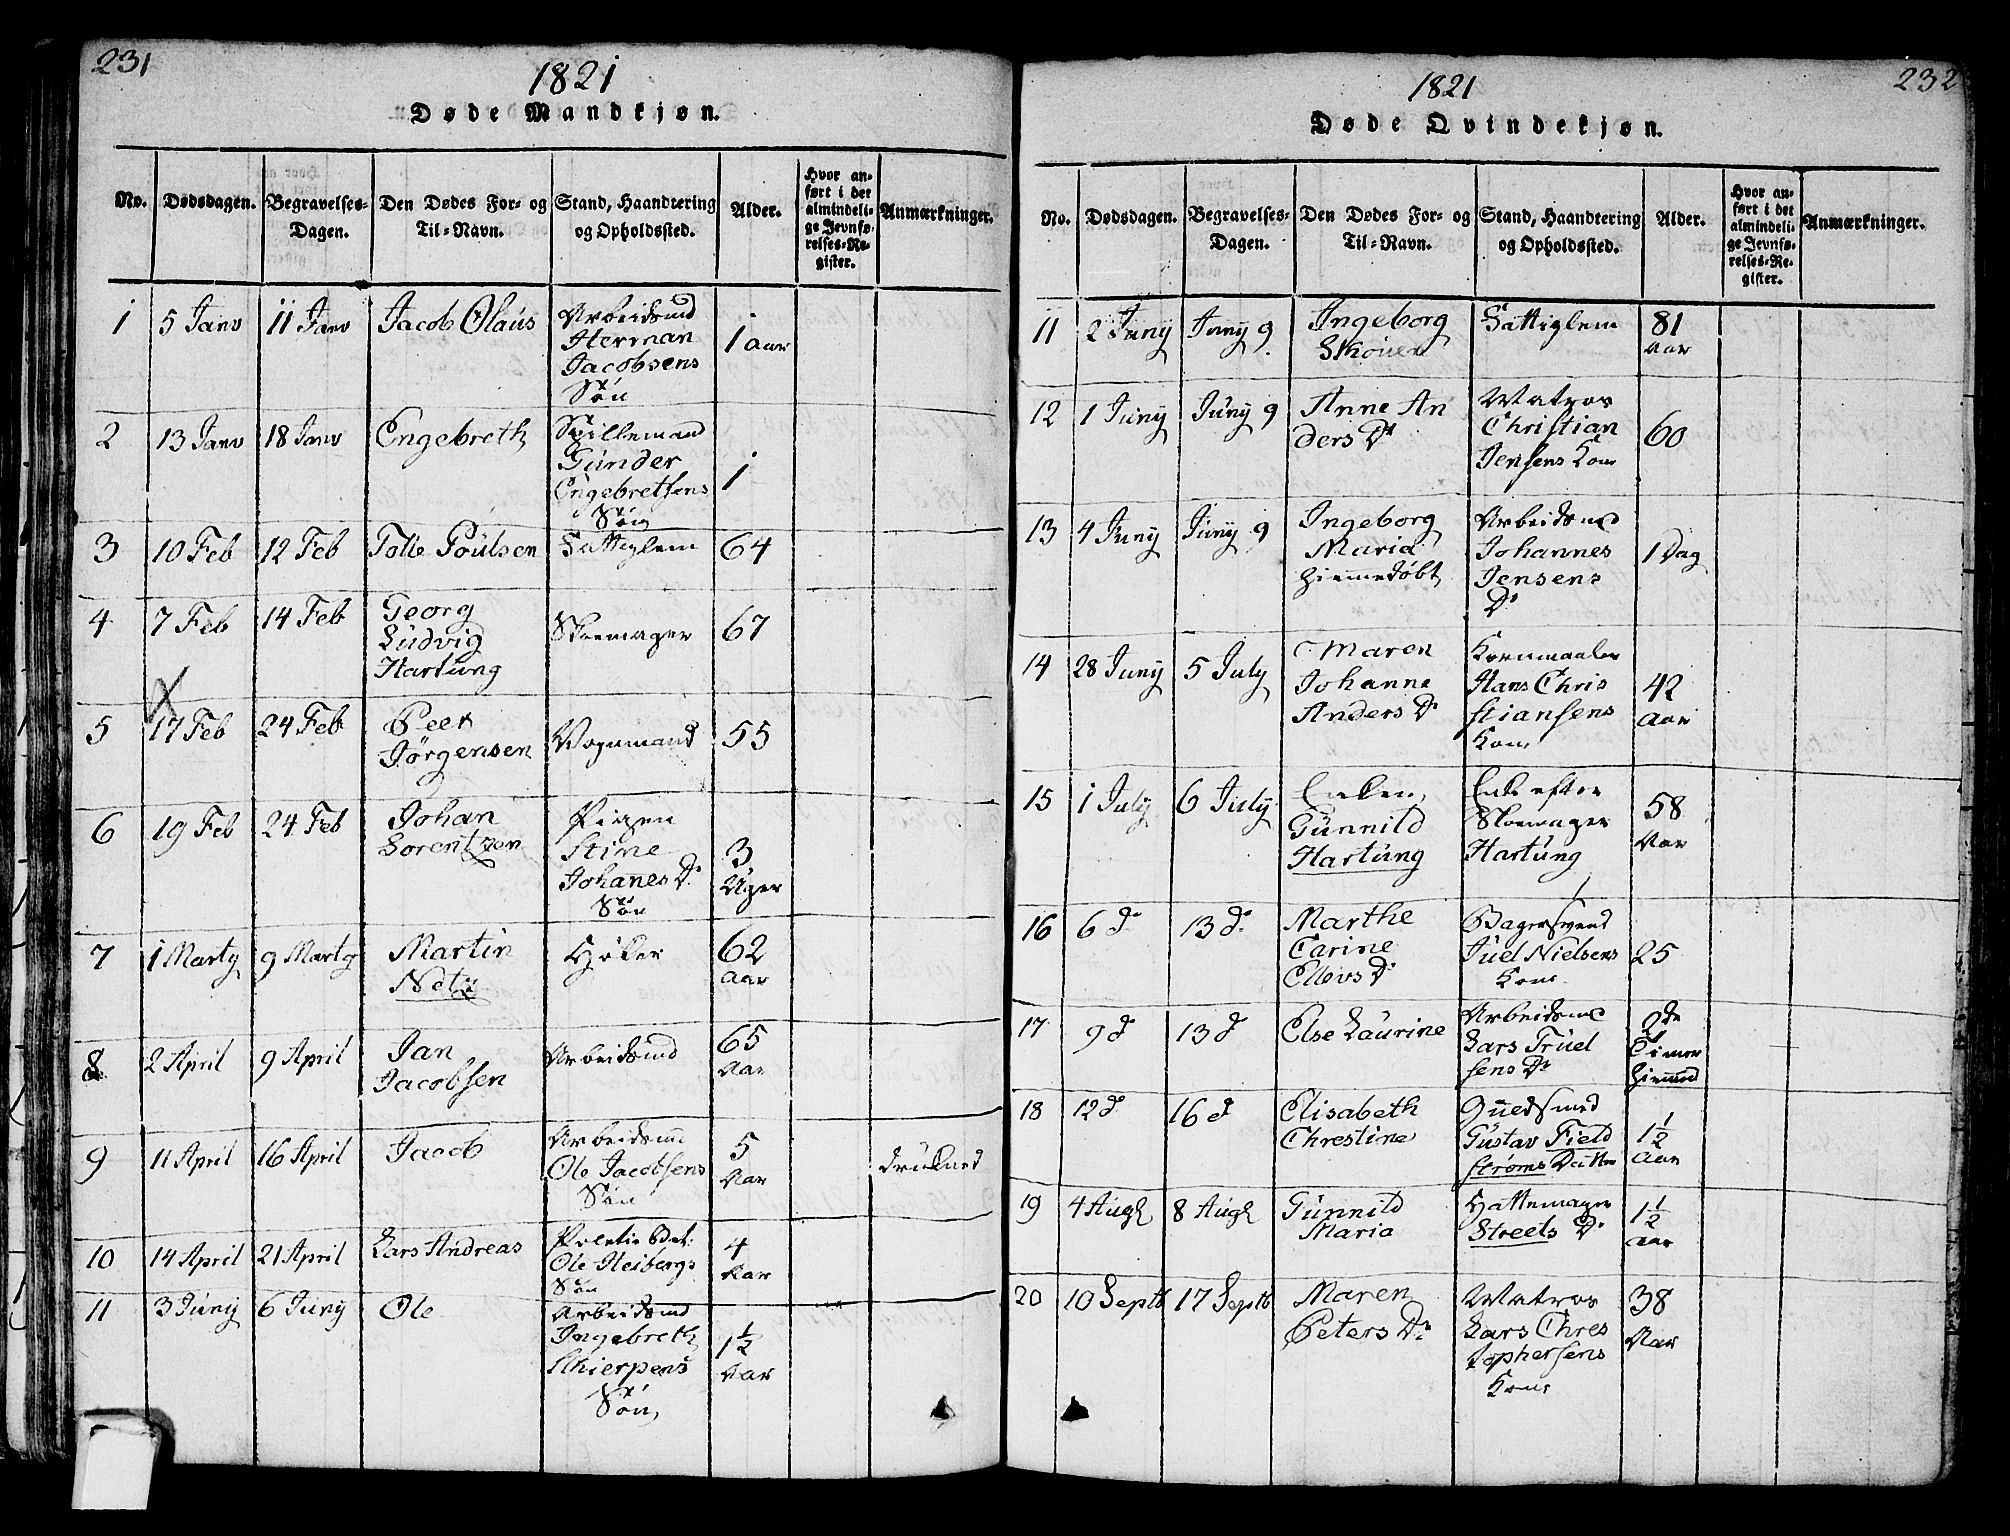 231
1821
Døde Mandkjøn.
No. Dødsdagen. Begravelses-Dagen. Den Dødes For- og Til-Navn. Stand, Haandtering og Opholdssted. Alder. Hvor anført i det almindelige Jevnførelses-Register. Anmærkninger.
1 5 Janv 11 Janv Jacob Olaus Arbeidsmd
Herman
Jacobsens
Søn 1 Aar
2 13 Janv 18 Janv Engebreth Spillemand
Gunder
Engebretsens
Søn 1
3 10 Feb 12 Feb Tolle Poulsen Fattiglem 64
4 7 Feb 14 Feb Georg
Ludvig
Hartung Skoemager 67
5 17 Feb 24 Feb Peer
Jørgensen Vognmand 55
6 19 Feb 24 Feb Johan
Sorentzen Pigen
Stine
Johanes Dr
Søn 3
Uger
7 1 Marty 9 Marty Martin
Netz Høker 62
Aar
8 2 April 9 April Jan
Jacobsen Arbeidsmd 65
Aar
9 11 April 16 April Jacob Arbeidsm
Ole Jacobsens
Søn 5
Aar drukned
10 14 April 21 April Lars Andreas Politie Bet:
Ole Heibergs
Søn 4
Aar
11 3 Juny 6 Juny Ole Arbeidsmd
Ingebreth
Skierpens
Søn 1½
Aar
232
1821
Døde Qvindekjøn.
No. Dødsdagen. Begravelses-Dagen. Den Dødes For- og Til-Navn. Stand, Haandtering og Opholdssted. Alder. Hvor anført i det almindelige Jevnførelses-Register. Anmærkninger.
11 2 Juny Juny 9 Ingeborg
Skouen Fattiglem 81
Aar
12 1 Juny Juny 9 Anne An
ders Dr Matros
Christian
Jensens Kone 60
13 4 Juny Juny 9 Ingeborg
Maria
hiemmedøbt Arbeidsmd
Johannes
Jensens
Dr 1 Dag
14 28 Juny 5 July Maren
Johanne
Anders Dr Kornmaaler
Hans Chris
stiansens
Kone 42
Aar
15 1 July 6 July Enken
Gunnild
Hartung Enke efter
Skoemager
Hartung 58
Aar
16 6 d 13 d Marthe
Carine
Ellevs Dr Bagersvend
Juel Nielsens
Kone 25
17 9 d 13 d Else Laurine Arbeidsmd
Lars Truel
sens Dr 2de
Timer
18 12 d 16 d Elisabeth
Chrestine Guldsmed
Gustav Field
strøms Datter 1½
Aar
19 4 Augt 8 Augt Gunnild
Maria Hattemager
Streets Dr 1½
Aar
20 10 Septb 17 Septb Maren
Peters Dr Matros
Lars Chres
tophersens
Kone 38
Aar